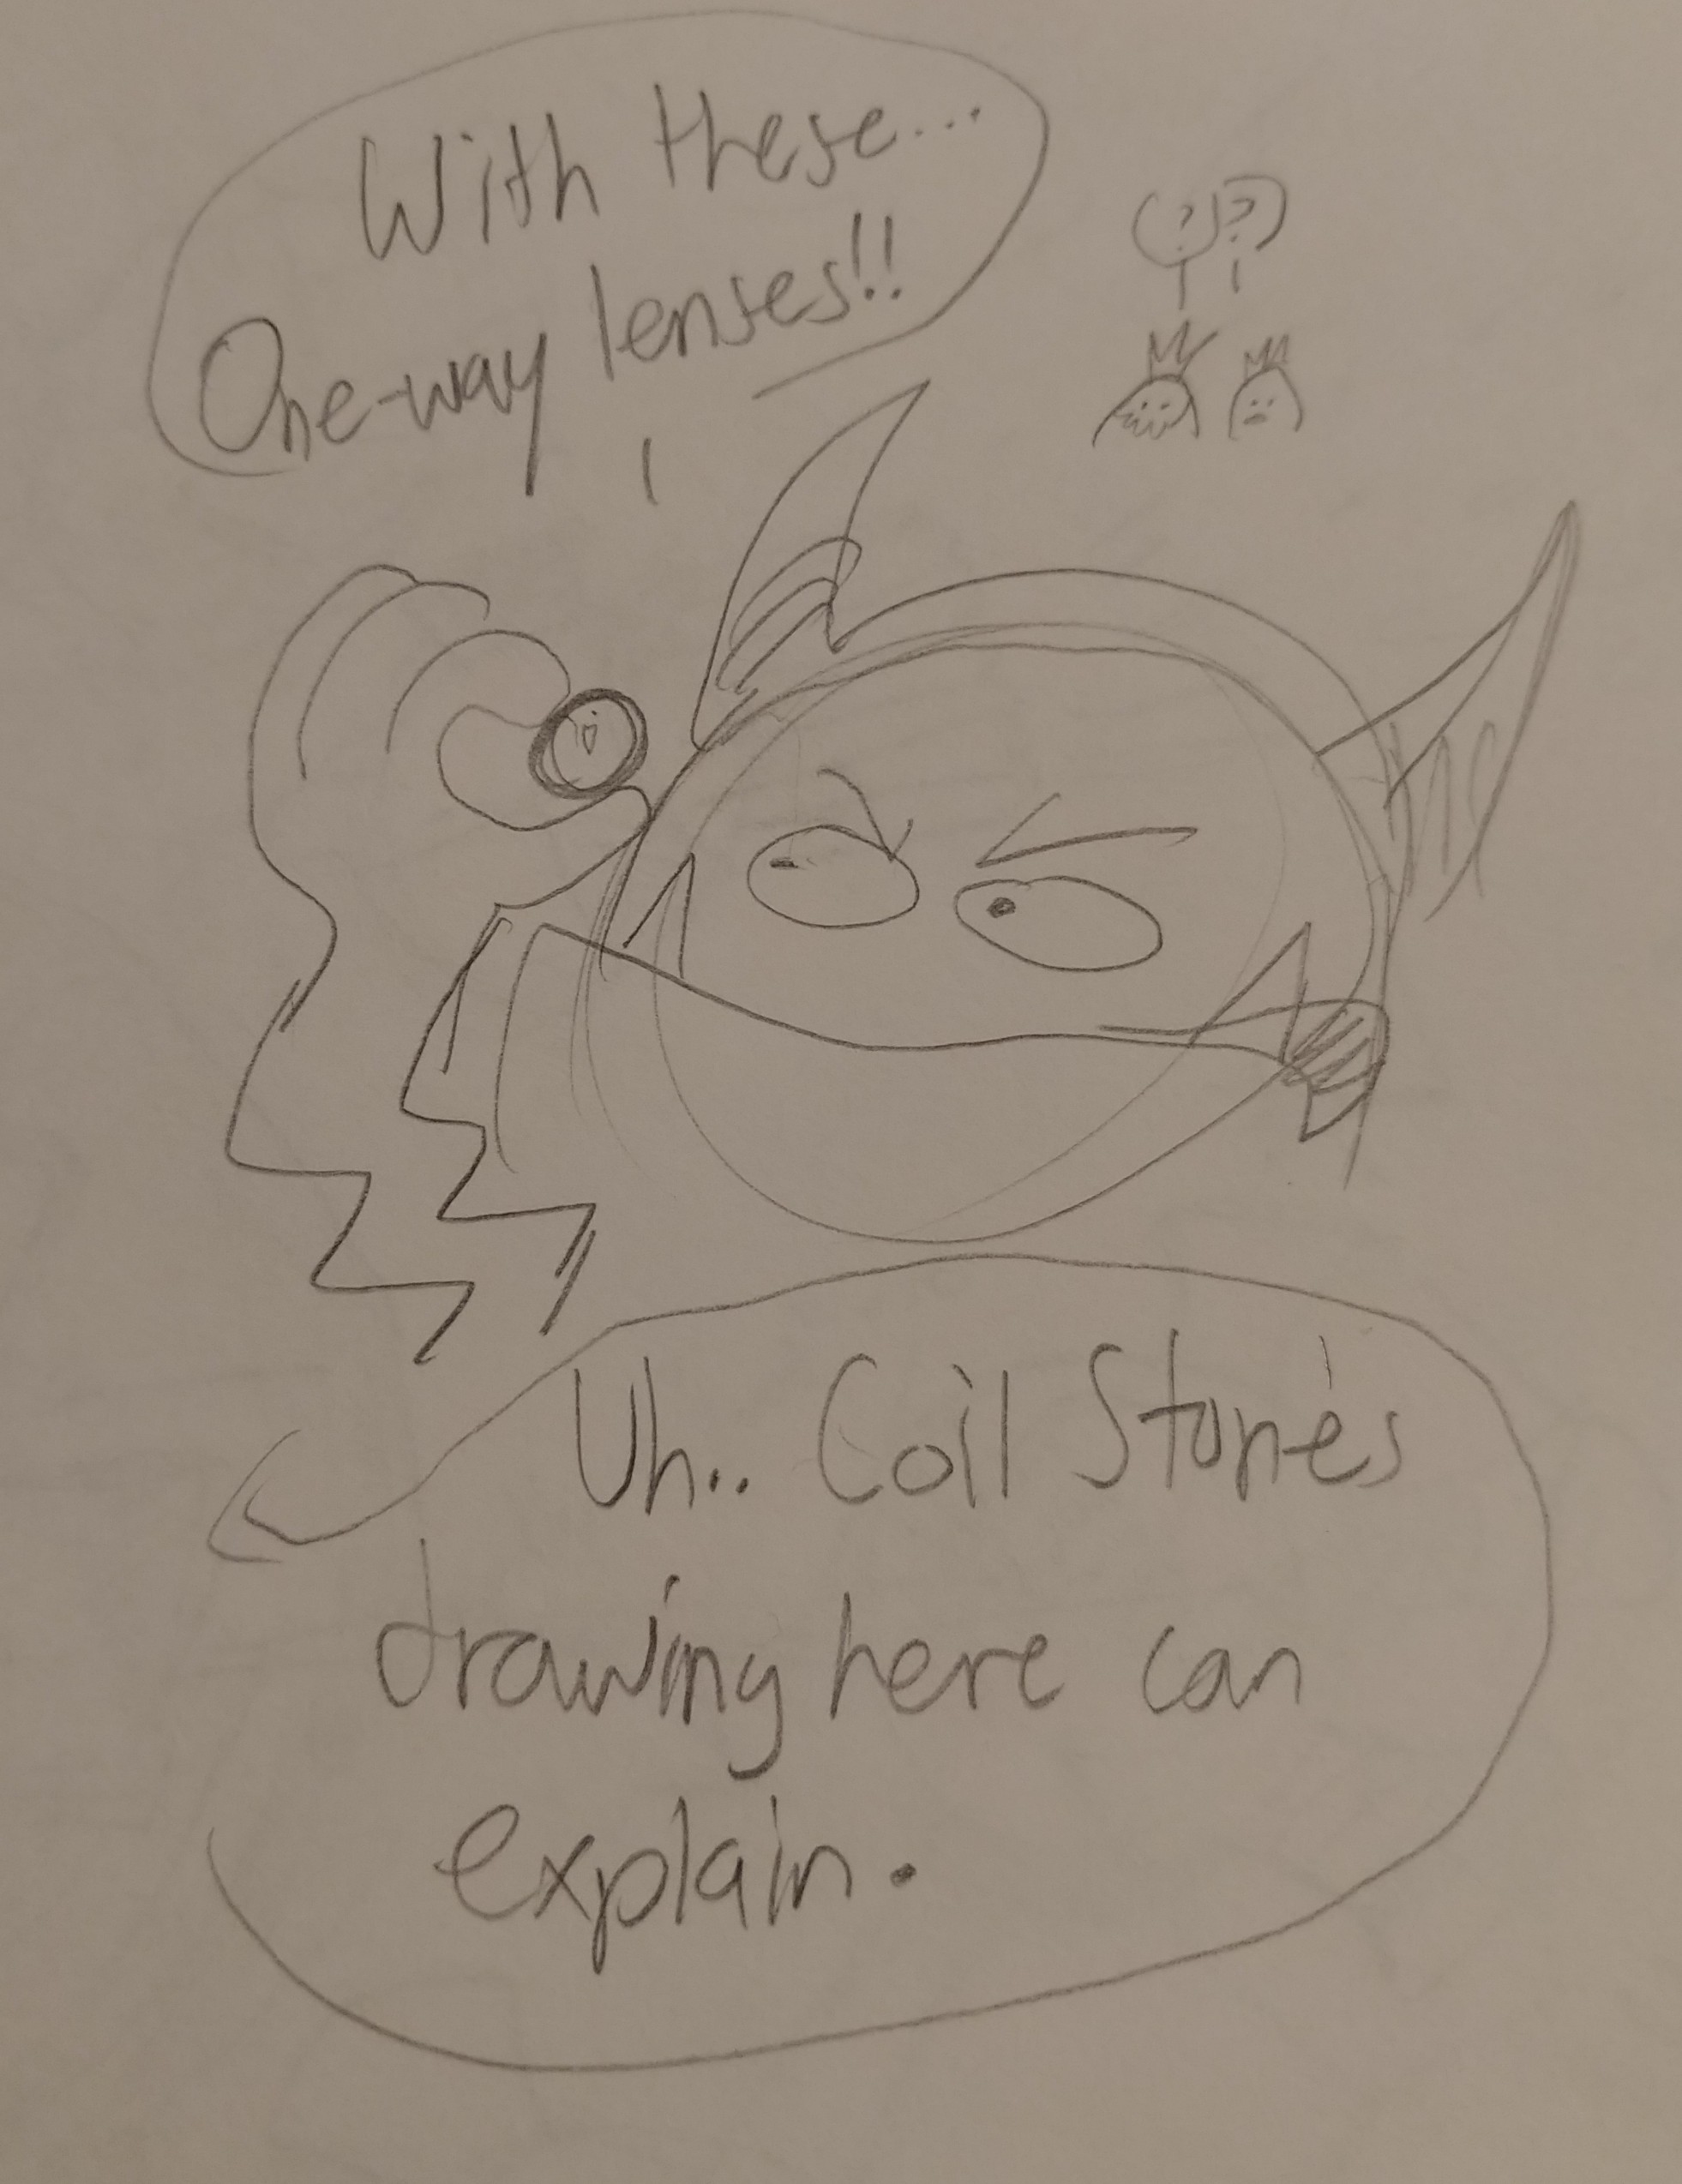 With these...
One-way lenses!!
? ?
Uh.. Coil Stone's
drawing here can
explain.